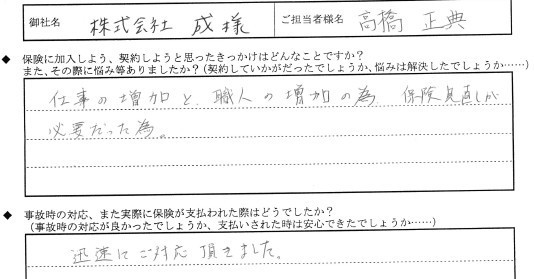 御社名 株式会社 成様 ご担当者様名 高橋 正典
◆ 保険に加入しよう、契約しようと思ったきっかけはどんなことですか？
また、その際に悩み等ありましたか？（契約していかがだったでしょうか、悩みは解決したでしょうか……）
仕事の増加と、職人の増加の為 保険見直しが
必要だった為。
◆ 事故時の対応、また実際に保険が支払われた際はどうでしたか？
（事故時の対応が良かったでしょうか、支払いされた時は安心できたでしょうか……）
迅速にご対応頂きました。